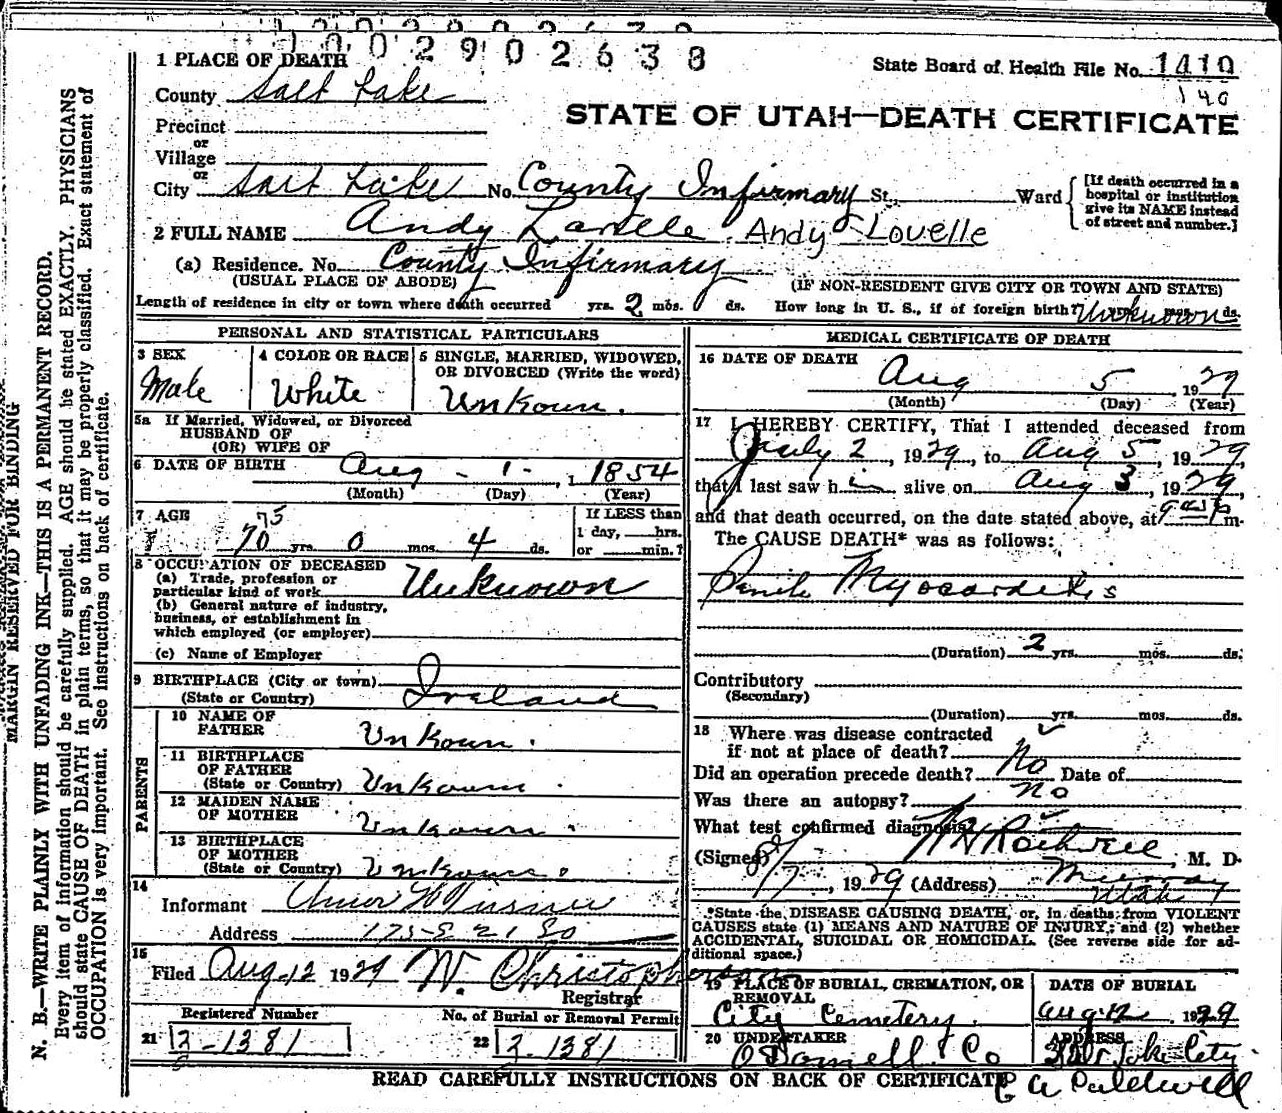 1002902638
1 PLACE OF DEATH
State Board of Health File No. 1410
140
County Salt Lake
STATE OF UTAH—DEATH CERTIFICATE
Precinct
or
Village
or
City Salt Lake No. County Infirmary St. Ward [If death occurred in a hospital or institution give its NAME instead of street and number.]
2 FULL NAME Andy Lavelle Andy Lovelle
(a) Residence. No. County Infirmary
(USUAL PLACE OF ABODE) (IF NON-RESIDENT GIVE CITY OR TOWN AND STATE)
Length of residence in city or town where death occurred yrs. 2 mos. ds. How long in U. S., if of foreign birth? Unknown ds.
PERSONAL AND STATISTICAL PARTICULARS
3 SEX
Male
4 COLOR OR RACE
White
5 SINGLE, MARRIED, WIDOWED, OR DIVORCED (Write the word)
Unkoun.
5a If Married, Widowed, or Divorced
HUSBAND OF
(OR) WIFE OF
6 DATE OF BIRTH Aug - 1 - , 1854
(Month) (Day) (Year)
7 AGE
75
70 yrs. 0 mos. 4 ds.
If LESS than
1 day, hrs.
or min.?
8 OCCUPATION OF DECEASED
(a) Trade, profession or
particular kind of work Unknown
(b) General nature of industry,
business, or establishment in
which employed (or employer)
(c) Name of Employer
9 BIRTHPLACE (City or town)
(State or Country) Ireland
PARENTS
10 NAME OF
FATHER Unkoun.
11 BIRTHPLACE
OF FATHER
(State or Country) Unkoun.
12 MAIDEN NAME
OF MOTHER Unkoun.
13 BIRTHPLACE
OF MOTHER
(State or Country) Unkoun.
14
Informant
Address 175-E 21 So
15
Filed Aug-12 1929 W. Christopherson
Registrar
Registered Number
21 2-1381
No. of Burial or Removal Permit
22 2-1381
MEDICAL CERTIFICATE OF DEATH
16 DATE OF DEATH
Aug 5 1929
(Month) (Day) (Year)
17 I HEREBY CERTIFY, That I attended deceased from
July 2, 1929, to Aug 5, 1929,
that I last saw him alive on Aug 3, 1929,
and that death occurred, on the date stated above, at m.
The CAUSE DEATH* was as follows:
Senile Myocarditis
(Duration) 2 yrs. mos. ds.
Contributory
(Secondary)
(Duration) yrs. mos. ds.
18 Where was disease contracted
if not at place of death?
Did an operation precede death? No Date of
Was there an autopsy? No
What test confirmed diagnosis?
(Signed) Rothwell, M. D.
8/7, 1929 (Address) Murray
Utah
*State the DISEASE CAUSING DEATH, or, in deaths from VIOLENT
CAUSES state (1) MEANS AND NATURE OF INJURY; and (2) whether
ACCIDENTAL, SUICIDAL OR HOMICIDAL. (See reverse side for additional space.)
19 PLACE OF BURIAL, CREMATION, OR
REMOVAL
City Cemetery.
DATE OF BURIAL
Aug 12, 1929
20 UNDERTAKER
O'Donnell Co
ADDRESS
Salt Lake City
READ CAREFULLY INSTRUCTIONS ON BACK OF CERTIFICATE
A Caldwell
MARGIN RESERVED FOR BINDING
N. B.—WRITE PLAINLY WITH UNFADING INK—THIS IS A PERMANENT RECORD.
Every item of information should be carefully supplied. AGE should be stated EXACTLY. PHYSICIANS
should state CAUSE OF DEATH in plain terms, so that it may be properly classified. Exact statement of
OCCUPATION is very important. See instructions on back of certificate.